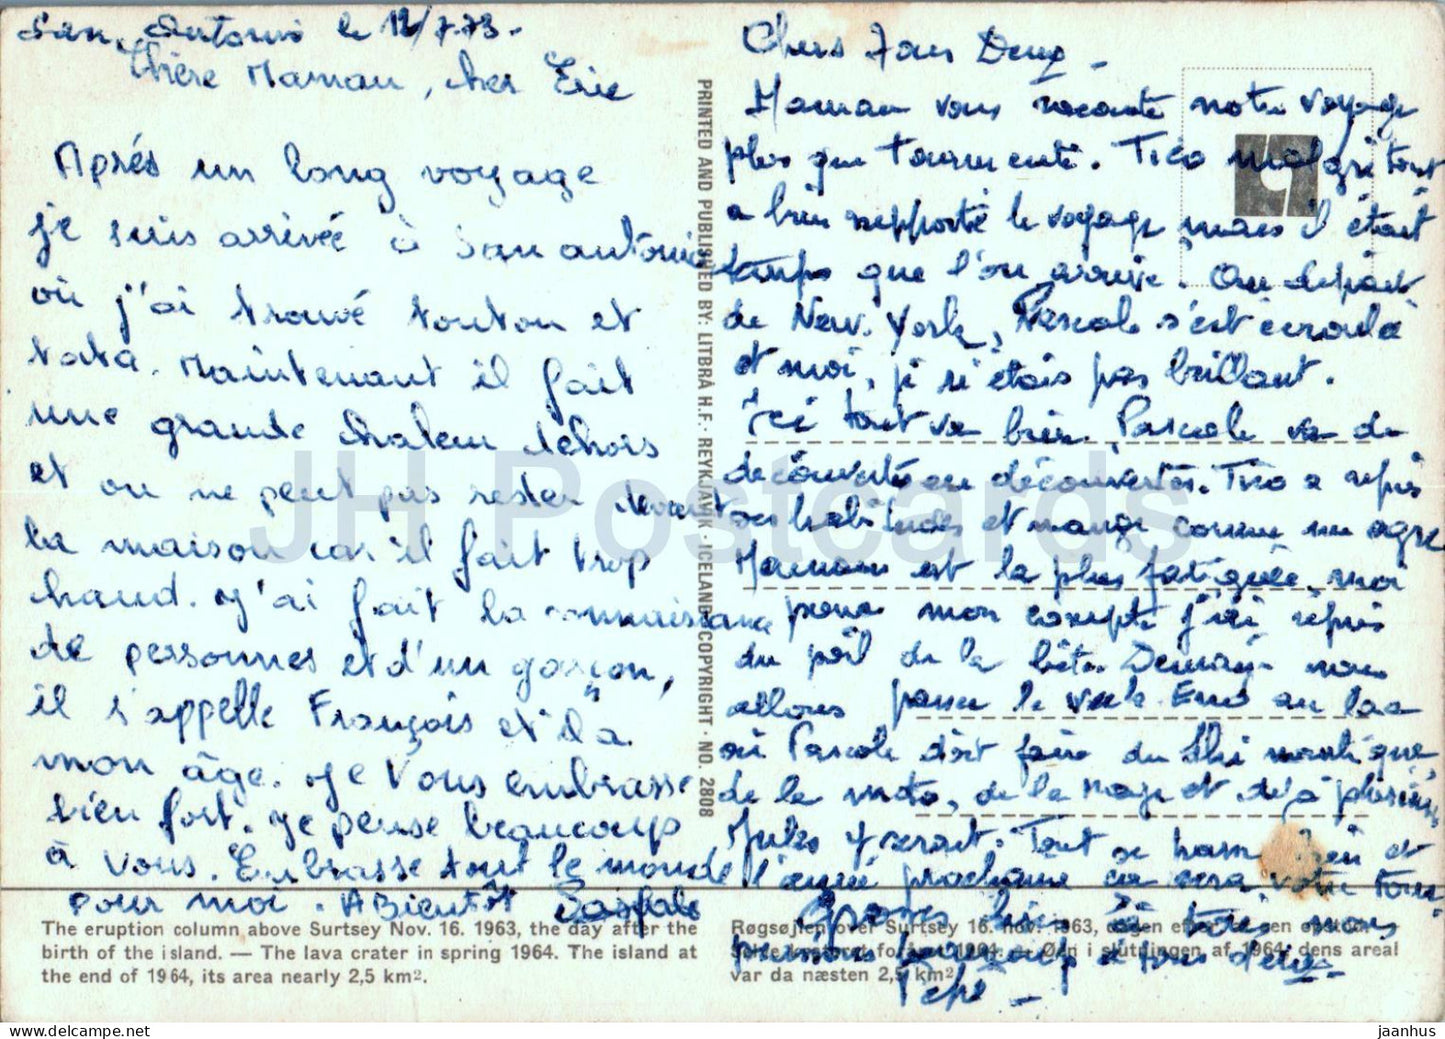 San Antonio le 12/7.73.
Chère Maman, cher Eric
Aprés un long voyage
je suis arrivée à San antonio
où j'ai trouvé tonton et
tata. Maintenant il fait
une grande chaleur dehors
et on ne peut pas rester devant
la maison car il fait trop
chaud. J'ai fait la connaissance
de personnes et d'un garçon,
il s'appelle François et il a
mon âge. Je vous embrasse
bien fort. Je pense beaucoup
à vous. Embrasse tout le monde
pour moi. A Bientôt Pascale
Chers Tous Deux
Maman vous raconte notre voyage
plus que tourmenté. Tico malgré tout
a bien supporté le voyage mais il était
temps que l'on arrive. Au départ
de New-York, Pascale s'est écroulée
et moi, je n'étais pas brillant.
Ici tout va bien. Pascale va de
découverte en découvertes. Tico a repris
ses habitudes et mange comme un ogre
Maman est la plus fatiguée, moi
pour mon compte j'ai repris
du poil de la bête. Demain nous
allons passer le week-end au lac
où Pascale doit faire du ski nautique
de la moto, de la nage et déjà plusieurs
y seront. Tout se passe bien et
l'année prochaine ce sera votre tour.
Grosses bises à tous nous
pensons beaucoup à vous deux
Pépé
PRINTED AND PUBLISHED BY: LITBRÁ H.F. · REYKJAVIK · ICELAND · COPYRIGHT · NO. 2808
The eruption column above Surtsey Nov. 16. 1963, the day after the
birth of the island. — The lava crater in spring 1964. The island at
the end of 1964, its area nearly 2,5 km².
Røgsøjlen over Surtsey 16. nov. 1963, dagen efter
1964. — Øen i slutningen af 1964, dens areal
var da næsten 2,5 km².
JH Postcards
jaanhus